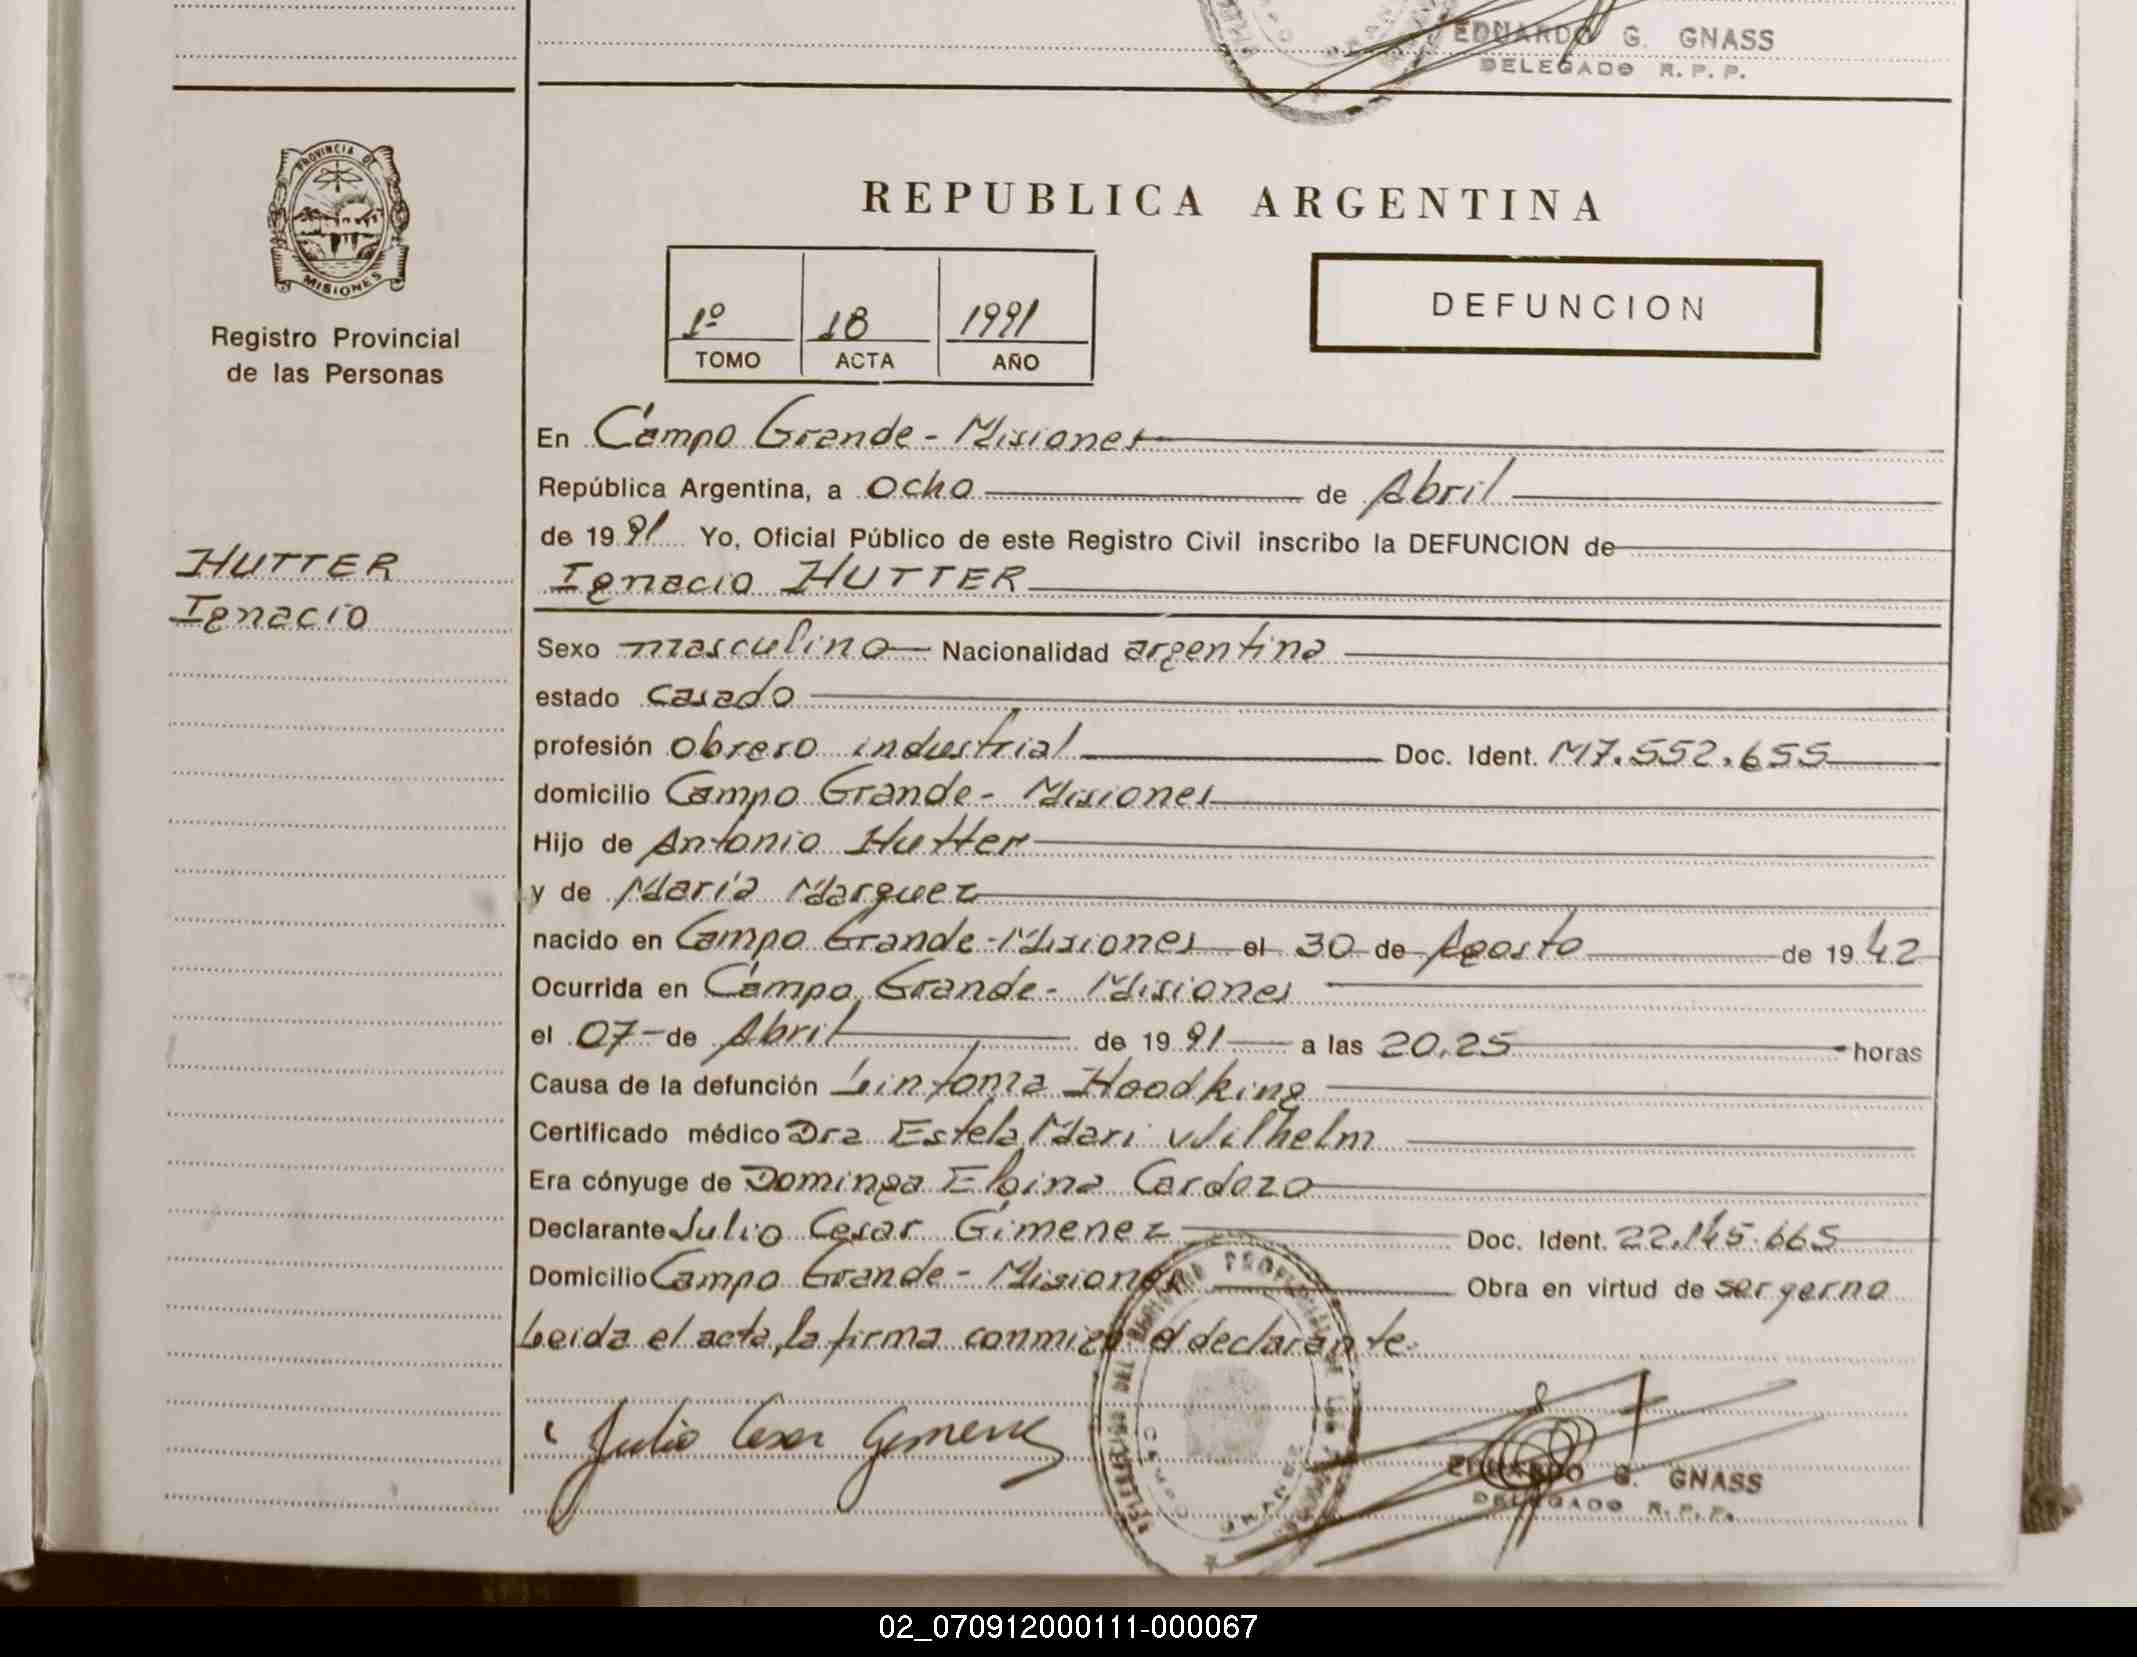 EDUARDO G. GNASS
DELEGADO R. P. P.
PROVINCIA DE
MISIONES
Registro Provincial
de las Personas
REPUBLICA ARGENTINA
1º 18 1991
TOMO ACTA AÑO
DEFUNCION
En Campo Grande - Misiones
República Argentina, a ocho de Abril
de 19 91 Yo, Oficial Público de este Registro Civil inscribo la DEFUNCION de
HUTTER
Ignacio
Ignacio HUTTER
Sexo masculino Nacionalidad argentina
estado casado
profesión obrero industrial Doc. Ident. M7.552.655
domicilio Campo Grande - Misiones
Hijo de Antonio Hutter
y de María Marquez
nacido en Campo Grande - Misiones el 30 de Agosto de 19 42
Ocurrida en Campo Grande - Misiones
el 07 de Abril de 19 91 a las 20,25 horas
Causa de la defunción Linfoma Hoodking
Certificado médico Dra Estela Mari Wilhelm
Era cónyuge de Dominga Elbina Cardozo
Declarante Julio Cesar Gimenez Doc. Ident. 22.145.665
Domicilio Campo Grande - Misiones Obra en virtud de ser yerno
Leida el acta, la firma conmigo el declarante.
Julio Cesar Gimenez
DELEGACION DEL REGISTRO PROVINCIAL DE LAS PERSONAS
CAMPO GRANDE
EDUARDO G. GNASS
DELEGADO R. P. P.
02_070912000111-000067